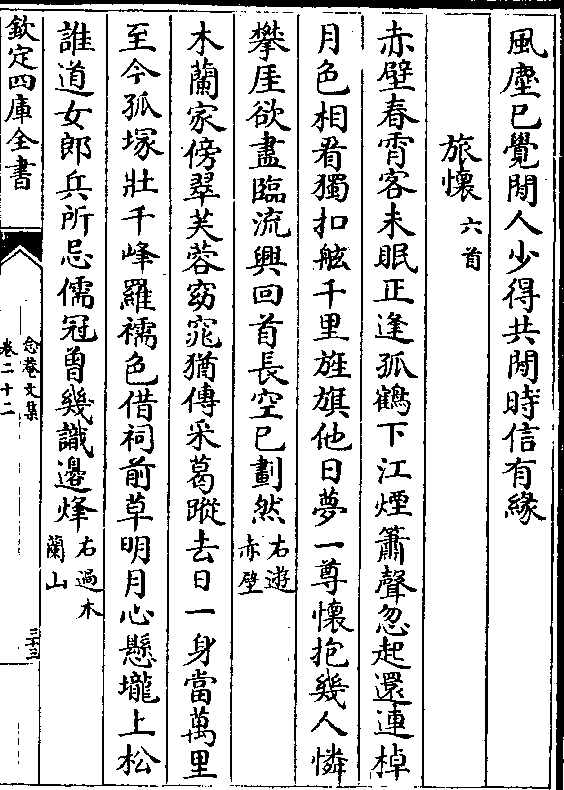 風塵已覺閒人少得共閒時信有緣
旅懷六首
赤壁春霄客未眠正逢孤鶴下江煙簫聲忽起還連棹
月色相看獨扣舷千里旌旗他日夢一尊懷抱幾人憐
攀厓欲盡臨流興回首長空已劃然右遊赤壁
木蘭家傍翠芙蓉窈窕猶傳采葛蹤去日一身當萬里
至今孤塚壯千峰羅襦色借祠前草明月心懸壠上松
誰道女郎兵所忌儒冠曾幾識邊烽右過木蘭山
欽定四庫全書
念菴文集
卷二十二
三十三